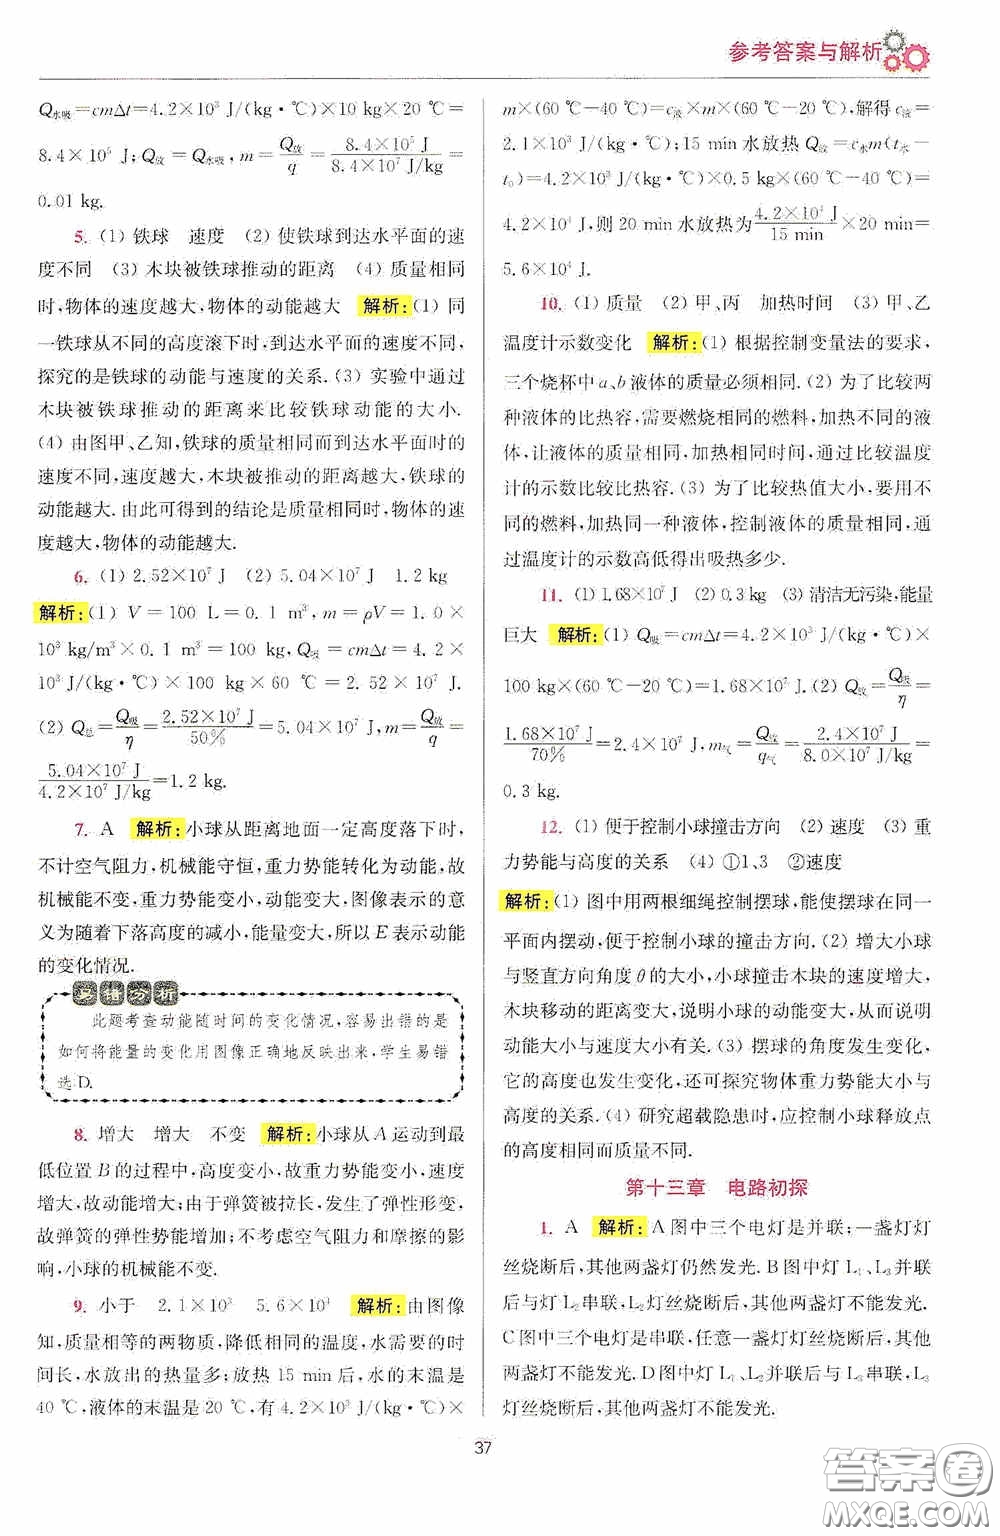 参考答案与解析
Q水吸=cmΔt=4.2×10³ J/(kg·℃)×10 kg×20 ℃=
8.4×10⁵ J;Q放=Q水吸,m=Q放/q=8.4×10⁵ J/8.4×10⁷ J/kg=
0.01 kg.
5. (1) 铁球 速度 (2) 使铁球到达水平面的速
度不同 (3) 木块被铁球推动的距离 (4) 质量相同
时,物体的速度越大,物体的动能越大 解析:(1) 同
一铁球从不同的高度滚下时,到达水平面的速度不同,
探究的是铁球的动能与速度的关系.(3) 实验中通过
木块被铁球推动的距离来比较铁球动能的大小.
(4) 由图甲、乙知,铁球的质量相同而到达水平面时的
速度不同,速度越大,木块被推动的距离越大,铁球的
动能越大.由此可得到的结论是质量相同时,物体的速
度越大,物体的动能越大.
6. (1) 2.52×10⁷ J (2) 5.04×10⁷ J 1.2 kg
解析:(1) V=100 L=0.1 m³,m=ρV=1.0×
10³ kg/m³×0.1 m³=100 kg,Q吸=cmΔt=4.2×
10³ J/(kg·℃)×100 kg×60 ℃=2.52×10⁷ J.
(2) Q总=Q吸/η=2.52×10⁷ J/50%=5.04×10⁷ J,m=Q放/q=
5.04×10⁷ J/4.2×10⁷ J/kg=1.2 kg.
7. A 解析:小球从距离地面一定高度落下时,
不计空气阻力,机械能守恒,重力势能转化为动能,故
机械能不变,重力势能变小,动能变大,图像表示的意
义为随着下落高度的减小,能量变大,所以E表示动能
的变化情况.
易错分析
此题考查动能随时间的变化情况,容易出错的是
如何将能量的变化用图像正确地反映出来,学生易错
选D.
8. 增大 增大 不变 解析:小球从A运动到最
低位置B的过程中,高度变小,故重力势能变小,速度
增大,故动能增大;由于弹簧被拉长,发生了弹性形变,
故弹簧的弹性势能增大.由于不计空气阻力和摩擦的影
响,小球的机械能不变.
9. 小于 2.1×10³ 5.6×10⁴ 解析:由图像
知,质量相等的两物质,降低相同的温度,水需要的时
间长,水放出的热量多;放热15 min后,水的末温是
40 ℃,液体的末温是20 ℃,有4.2×10³ J/(kg·℃)×
m×(60 ℃-40 ℃)=c液×m×(60 ℃-20 ℃),解得c液=
2.1×10³ J/(kg·℃);15 min水放热Q放=c水m(t水-
t₀)=4.2×10³ J/(kg·℃)×0.5 kg×(60 ℃-40 ℃)=
4.2×10⁴ J,则20 min水放热为4.2×10⁴ J/15 min×20 min=
5.6×10⁴ J.
10. (1) 质量 (2) 甲、丙 加热时间 (3) 甲、乙
温度计示数变化 解析:(1) 根据控制变量法的要求,
三个烧杯中a、b液体的质量必须相同.(2) 为了比较两
种液体的比热容,需要燃烧相同的燃料,加热不同的液
体,让液体的质量相同,加热相同时间,通过比较温度
计的示数比较比热容.(3) 为了比较热值大小,要用不
同的燃料,加热同一种液体,控制液体的质量相同,通
过温度计的示数高低得出吸热多少.
11. (1) 1.68×10⁷ J (2) 0.3 kg (3) 清洁无污染,能量
巨大 解析:(1) Q吸=cmΔt=4.2×10³ J/(kg·℃)×
100 kg×(60 ℃-20 ℃)=1.68×10⁷ J.(2) Q放=Q吸/η=
1.68×10⁷ J/70%=2.4×10⁷ J,m气=Q放/q气=2.4×10⁷ J/8.0×10⁷ J/kg=
0.3 kg.
12. (1) 便于控制小球撞击方向 (2) 速度 (3) 重
力势能与高度的关系 (4) ①1、3 ②速度
解析:(1) 图中用两根细绳控制摆球,能使摆球在同一
平面内摆动,便于控制小球的撞击方向.(2) 增大小球
与竖直方向角度θ的大小,小球撞击木块的速度增大,
木块移动的距离变大,说明小球的动能变大,从而说明
动能大小与速度大小有关.(3) 摆球的角度发生变化,
它的高度也发生变化,还可探究物体重力势能大小与
高度的关系.(4) 研究超载隐患时,应控制小球释放点
的高度相同而质量不同.
第十三章 电路初探
1. A 解析:A图中三个电灯是并联;一盏灯灯
丝烧断后,其他两盏灯仍然发光.B图中灯L₁、L₃并联
后与灯L₂串联,L₂灯丝烧断后,其他两盏灯不能发光.
C图中三个电灯是串联,任意一盏灯灯丝烧断后,其他
两盏灯不能发光.D图中灯L₁、L₂并联后与L₃串联,L₃
灯丝烧断后,其他两盏灯不能发光.
37
答案圈
MXQE.COM